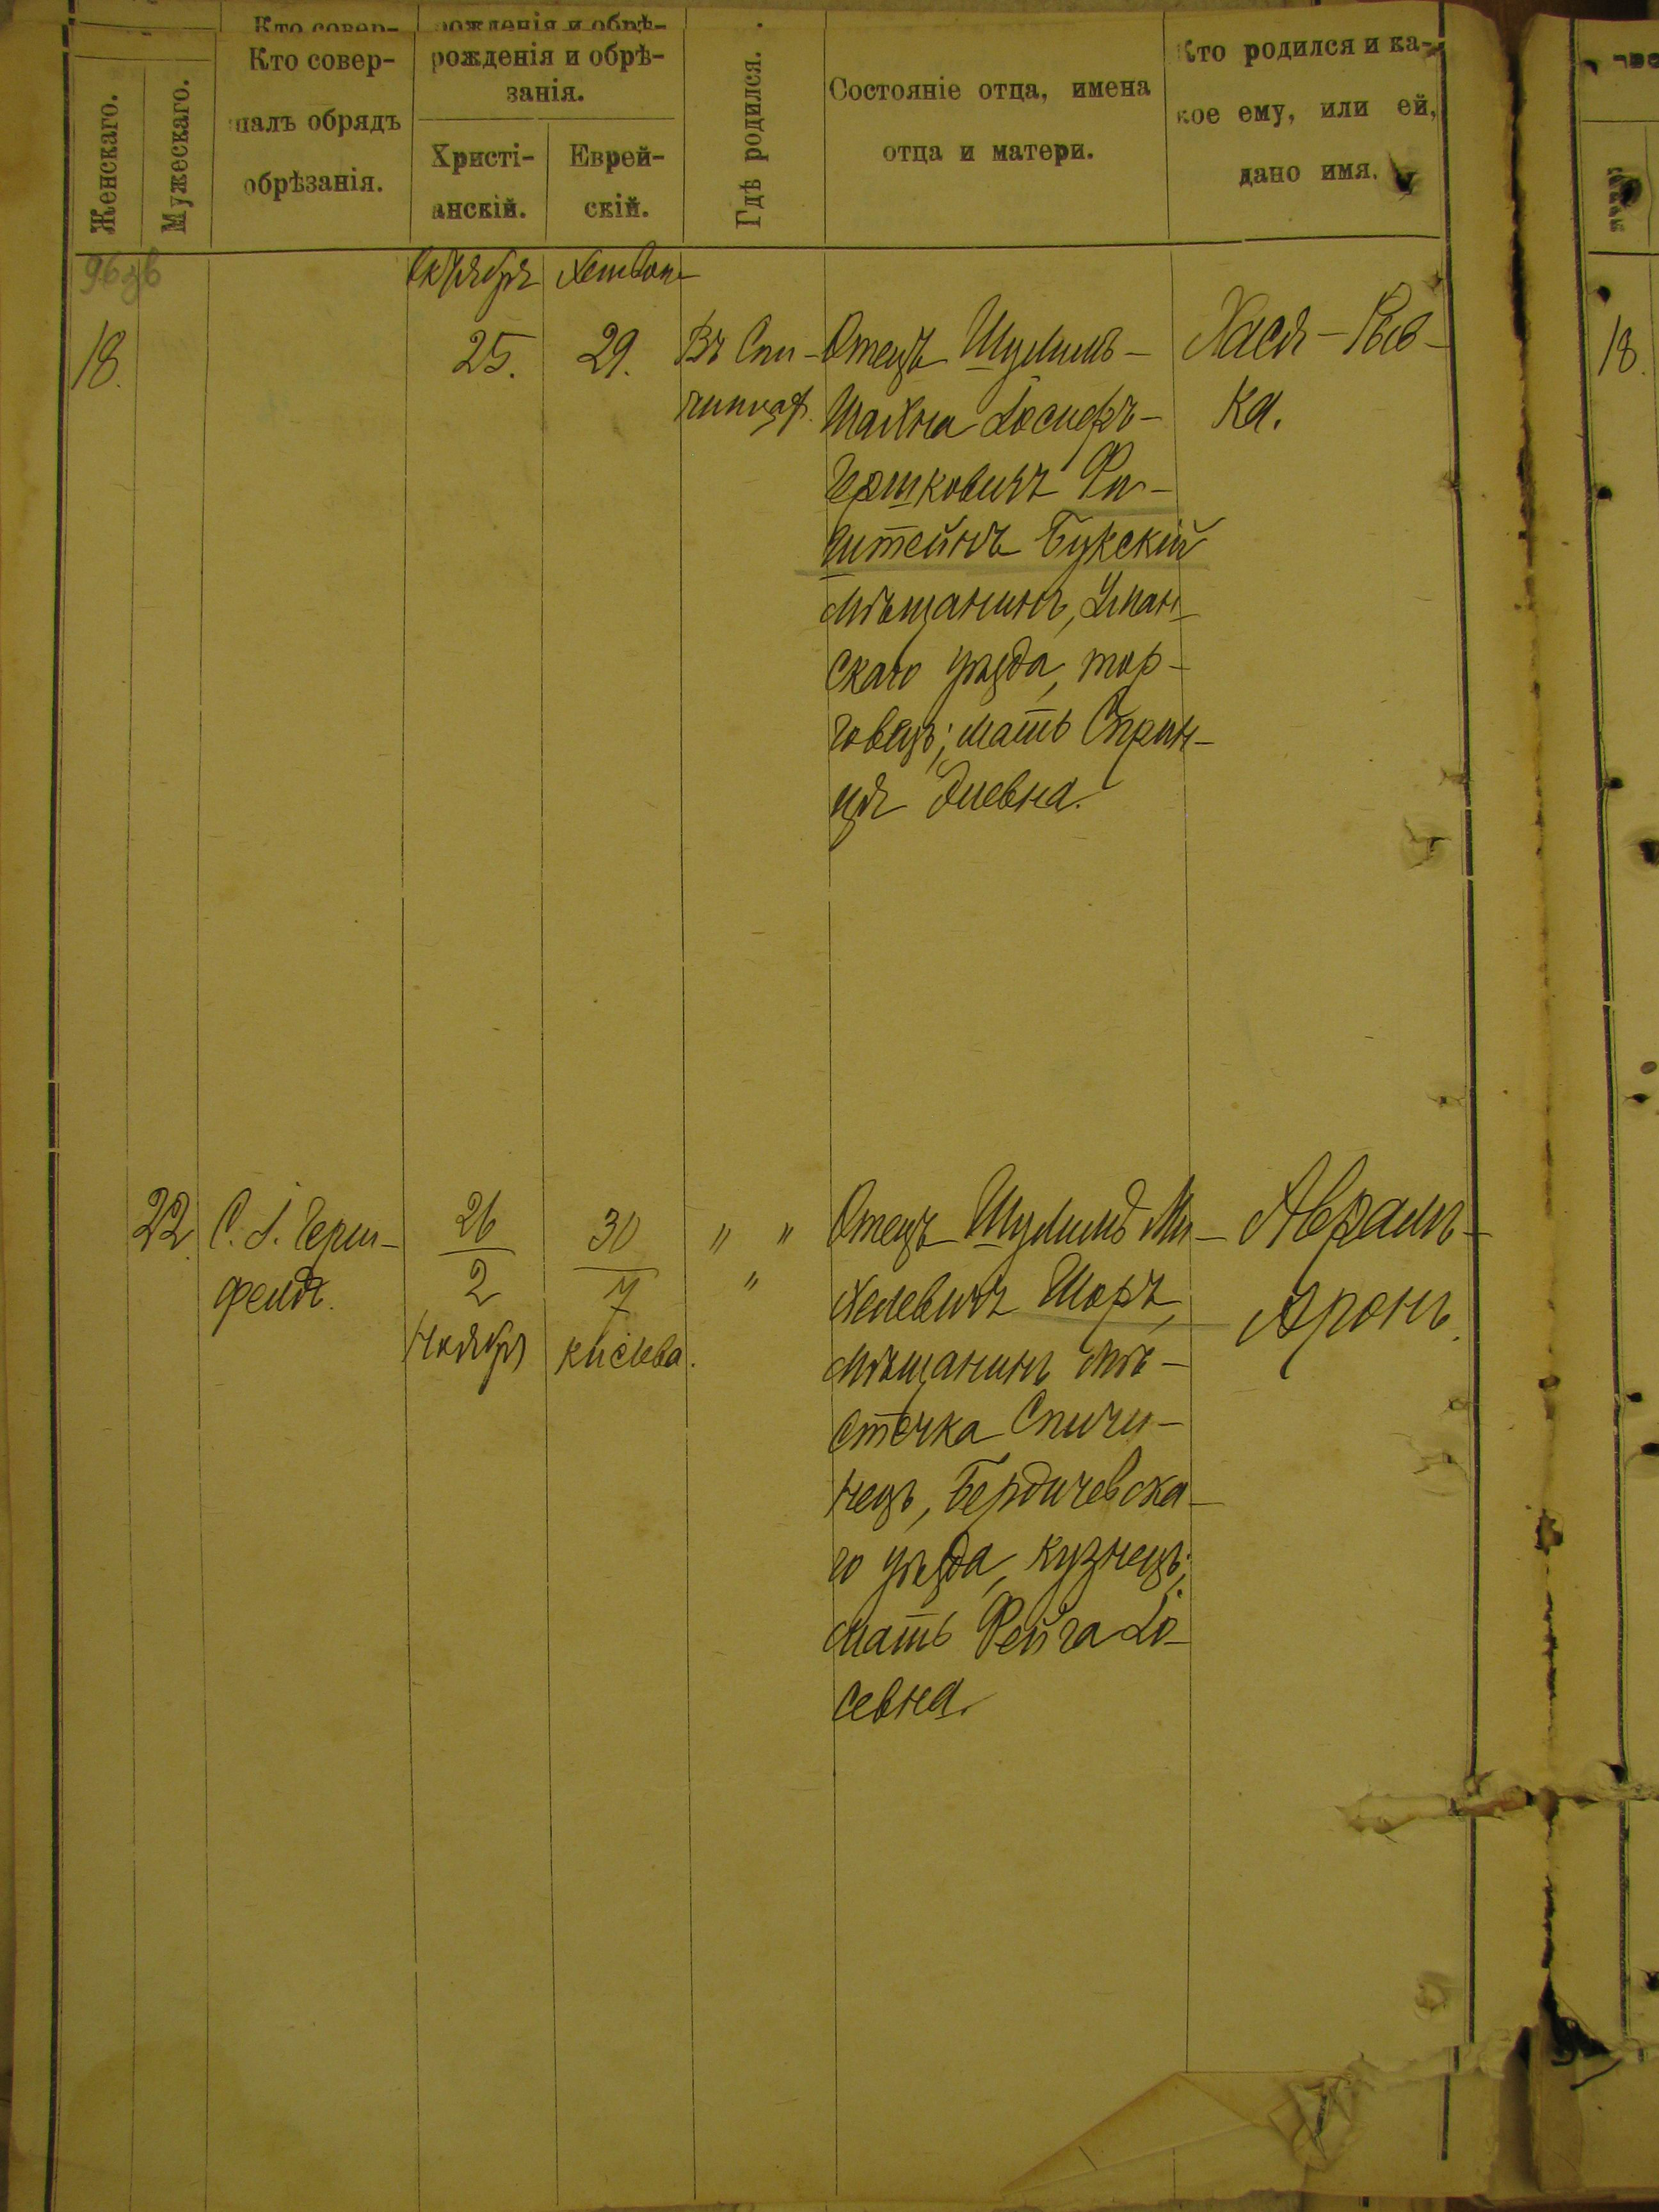 Женскаго.
Мужескаго.
Кто совер-
шалъ обрядъ
обрѣзанія.
рожденія и обрѣ-
занія.
Христі-
анскій.
Еврей-
скій.
Гдѣ родился.
Состояніе отца, имена
отца и матери.
Кто родился и ка-
кое ему, или ей,
дано имя.
Октября
18.
25.
29.
Въ Спи-
Отецъ Шулимъ-
Шахна Іосифъ-
Гершковичъ
Букскій
мѣщанинъ, Уман-
скаго уѣзда, тор-
говецъ; мать Сприн-
ця Элевна.
Хася-Рыв-
ка.
22.
С. І. Герш-
фельд.
26
2
Ноября
30
7
кислева.
" "
"
Отецъ Шулимъ Ми-
хелевичъ Шоръ,
мѣщанинъ мѣ-
стечка Спичи-
нецъ, Бердичевска-
го уѣзда, кузнецъ;
мать Фейга Іо-
севна.
Аврамъ-
Аронъ.
18.